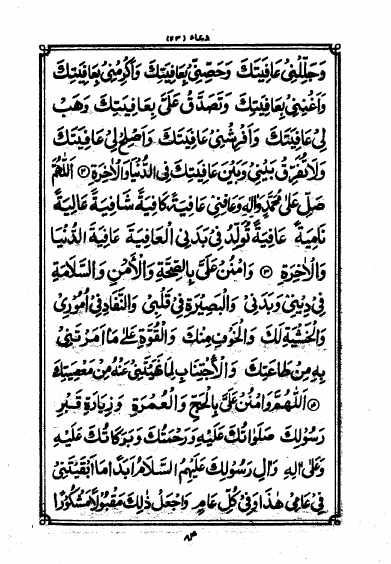 دعاء (٢٣)
وَجَلِّلْنِي عَافِيَتَكَ وَحَصِّنِّي بِعَافِيَتِكَ وَأَكْرِمْنِي بِعَافِيَتِكَ
وَأَغْنِنِي بِعَافِيَتِكَ وَتَصَدَّقْ عَلَيَّ بِعَافِيَتِكَ وَهَبْ
لِي عَافِيَتَكَ وَأَفْرِشْنِي عَافِيَتَكَ وَأَصْلِحْ لِي عَافِيَتَكَ
وَلَا تُفَرِّقْ بَيْنِي وَبَيْنَ عَافِيَتِكَ فِي الدُّنْيَا وَالْآخِرَةِ ② اَللّٰهُمَّ
صَلِّ عَلَى مُحَمَّدٍ وَآلِهِ وَعَافِنِي عَافِيَةً كَافِيَةً شَافِيَةً عَالِيَةً
نَامِيَةً عَافِيَةً تُوَلِّدُ فِي بَدَنِي الْعَافِيَةَ عَافِيَةَ الدُّنْيَا
وَالْآخِرَةِ ③ وَامْنُنْ عَلَيَّ بِالصِّحَّةِ وَالْأَمْنِ وَالسَّلَامَةِ
فِي دِينِي وَبَدَنِي وَالْبَصِيرَةِ فِي قَلْبِي وَالنَّفَاذِ فِي أُمُورِي
وَالْخَشْيَةِ لَكَ وَالْخَوْفِ مِنْكَ وَالْقُوَّةِ عَلَى مَا أَمَرْتَنِي
بِهِ مِنْ طَاعَتِكَ وَالْاِجْتِنَابِ لِمَا نَهَيْتَنِي عَنْهُ مِنْ مَعْصِيَتِكَ
اَللّٰهُمَّ وَامْنُنْ عَلَيَّ بِالْحَجِّ وَالْعُمْرَةِ وَزِيَارَةِ قَبْرِ
رَسُولِكَ صَلَوَاتُكَ عَلَيْهِ وَرَحْمَتُكَ وَبَرَكَاتُكَ عَلَيْهِ
وَعَلَى آلِهِ وَآلِ رَسُولِكَ عَلَيْهِمُ السَّلَامُ أَبَدًا مَا أَبْقَيْتَنِي
فِي عَامِي هٰذَا وَفِي كُلِّ عَامٍ وَاجْعَلْ ذٰلِكَ مَقْبُولًا مَشْكُورًا